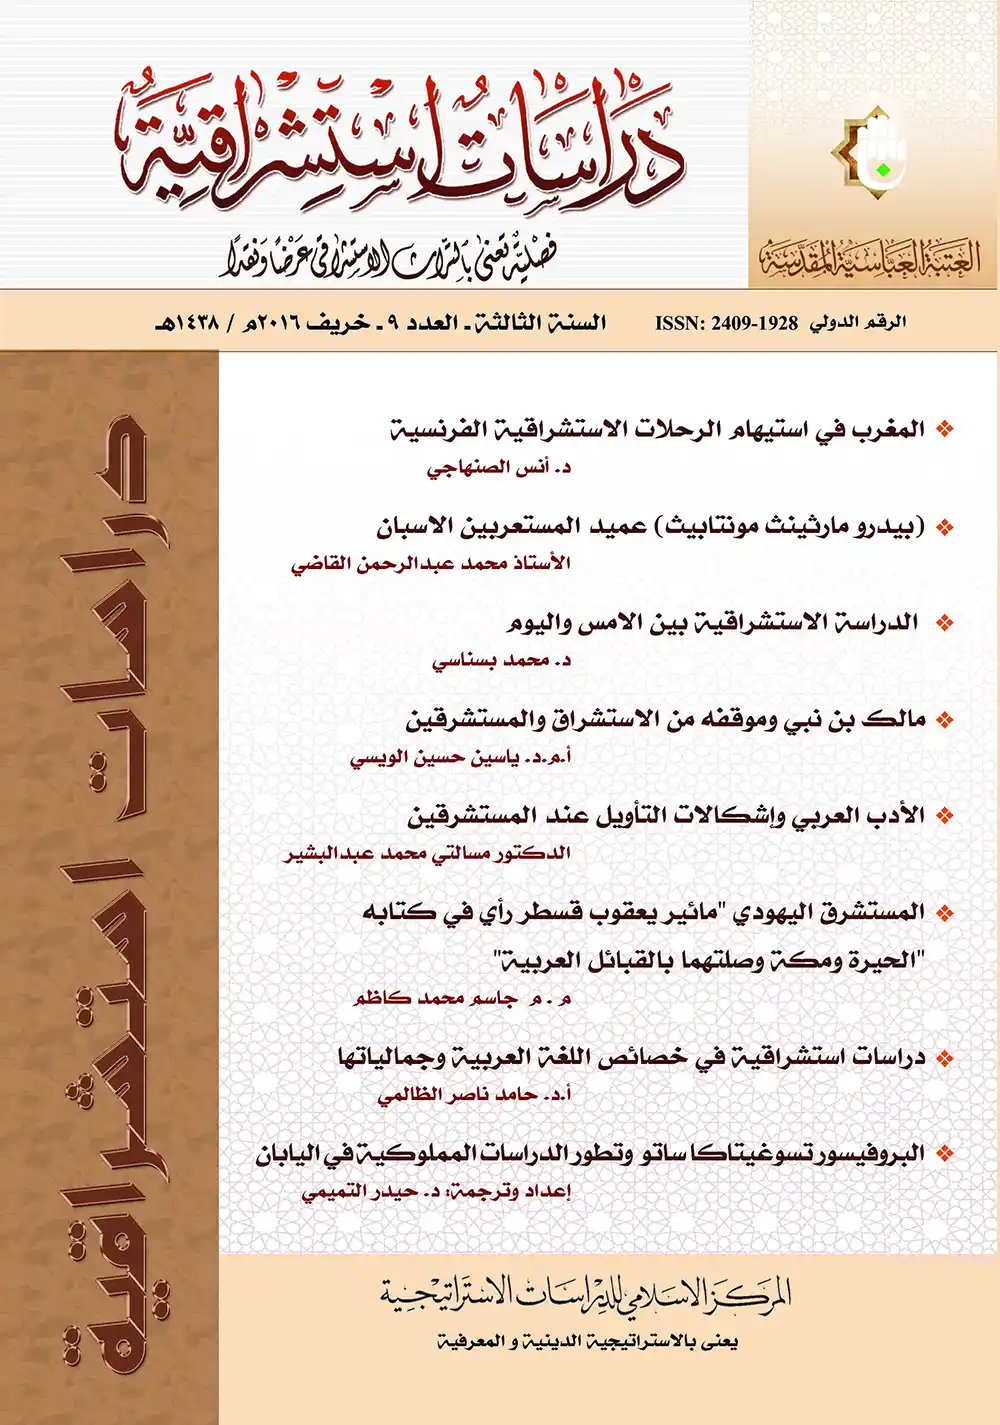 دراسات استشراقية
فصلية تعنى بالتراث الاستشراقي عرضًا ونقدًا
العتبة العباسية المقدسة
الرقم الدولي ISSN: 2409-1928
السنة الثالثة ـ العدد ٩ ـ خريف ٢٠١٦م / ١٤٣٨هـ
المغرب في استيهام الرحلات الاستشراقية الفرنسية
د. أنس الصنهاجي
(بيدرو مارثينث مونتابيث) عميد المستعربين الاسبان
الأستاذ محمد عبدالرحمن القاضي
الدراسة الاستشراقية بين الامس واليوم
د. محمد بسناسي
مالك بن نبي وموقفه من الاستشراق والمستشرقين
أ.م.د. ياسين حسين الويسي
الأدب العربي وإشكالات التأويل عند المستشرقين
الدكتور مسالتي محمد عبدالبشير
المستشرق اليهودي "مائير يعقوب قسطر رأي في كتابه
"الحيرة ومكة وصلتهما بالقبائل العربية"
م . م جاسم محمد كاظم
دراسات استشراقية في خصائص اللغة العربية وجمالياتها
أ.د. حامد ناصر الظالمي
البروفيسور تسوغيتاكا ساتو وتطور الدراسات المملوكية في اليابان
إعداد وترجمة: د. حيدر التميمي
المركز الاسلامي للدراسات الاستراتيجية
يعنى بالاستراتيجية الدينية و المعرفية
دراسات استشراقية